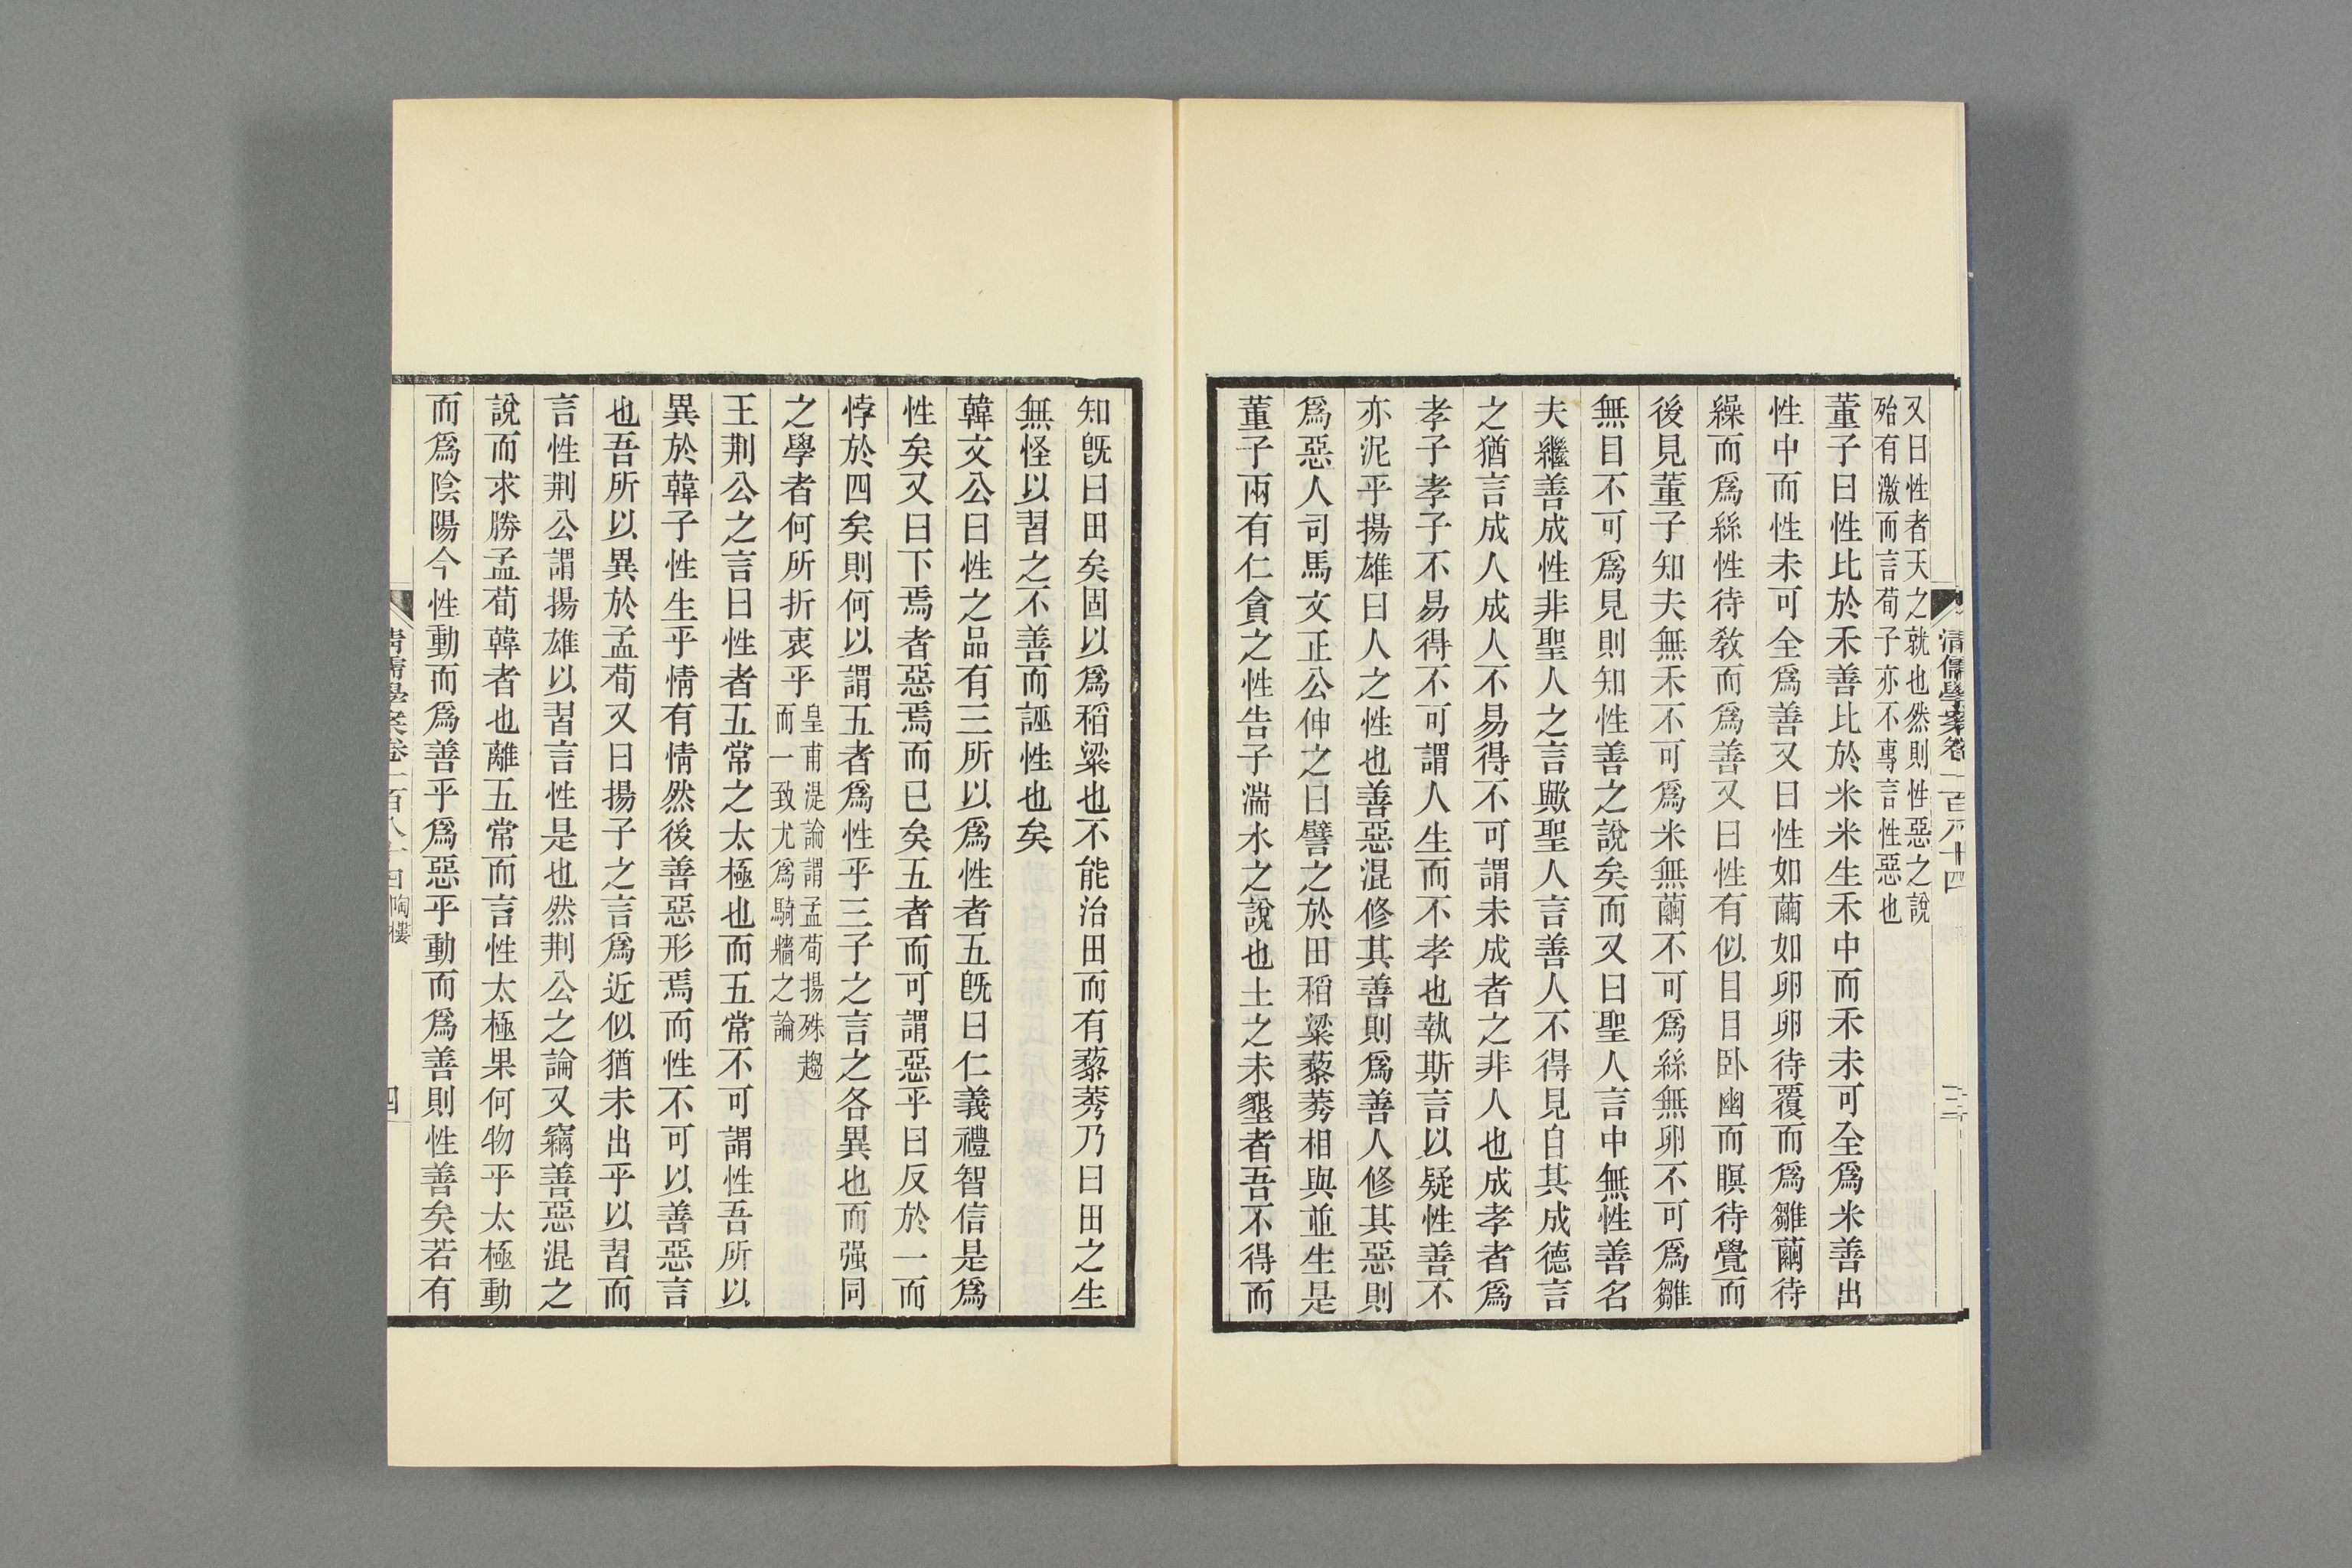 清儒學案卷一百八十四
三
又曰性者天之就也然則性惡之說
殆有激而言荀子亦不專言性惡也
董子曰性比於禾善比於米米生禾中而禾未可全爲米善出
性中而性未可全爲善又曰性如繭如卵卵待覆而爲雛繭待
繰而爲絲性待敎而爲善又曰性有似目目臥幽而瞑待覺而
後見董子知夫無禾不可爲米無繭不可爲絲無卵不可爲雛
無目不可爲見則知性善之說矣而又曰聖人言中無性善名
夫繼善成性非聖人之言歟聖人言善人不得見自其成德言
之猶言成人成人不易得不可謂未成者之非人也成孝者爲
孝子孝子不易得不可謂人生而不孝也執斯言以疑性善不
亦泥乎揚雄曰人之性也善惡混修其善則爲善人修其惡則
爲惡人司馬文正公伸之曰譬之於田稻粱藜莠相與並生是
董子兩有仁貪之性告子湍水之說也土之未墾者吾不得而
知旣曰田矣固以爲稻粱也不能治田而有藜莠乃曰田之生
無怪以習之不善而誣性也矣
韓文公曰性之品有三所以爲性者五旣曰仁義禮智信是爲
性矣又曰下焉者惡焉而已矣五者而可謂惡乎曰反於一而
悖於四矣則何以謂五者爲性乎三子之言之各異也而强同
之學者何所折衷乎
皇甫湜論謂孟荀揚殊趨
而一致尤爲騎牆之論
王荆公之言曰性者五常之太極也而五常不可謂性吾所以
異於韓子性生乎情有情然後善惡形焉而性不可以善惡言
也吾所以異於孟荀又曰揚子之言爲近似猶未出乎以習而
言性荆公謂揚雄以習言性是也然荆公之論又竊善惡混之
說而求勝孟荀韓者也離五常而言性太極果何物乎太極動
而爲陰陽今性動而爲善乎爲惡乎動而爲善則性善矣若有
清儒學案卷一百八十四 陶樓
四